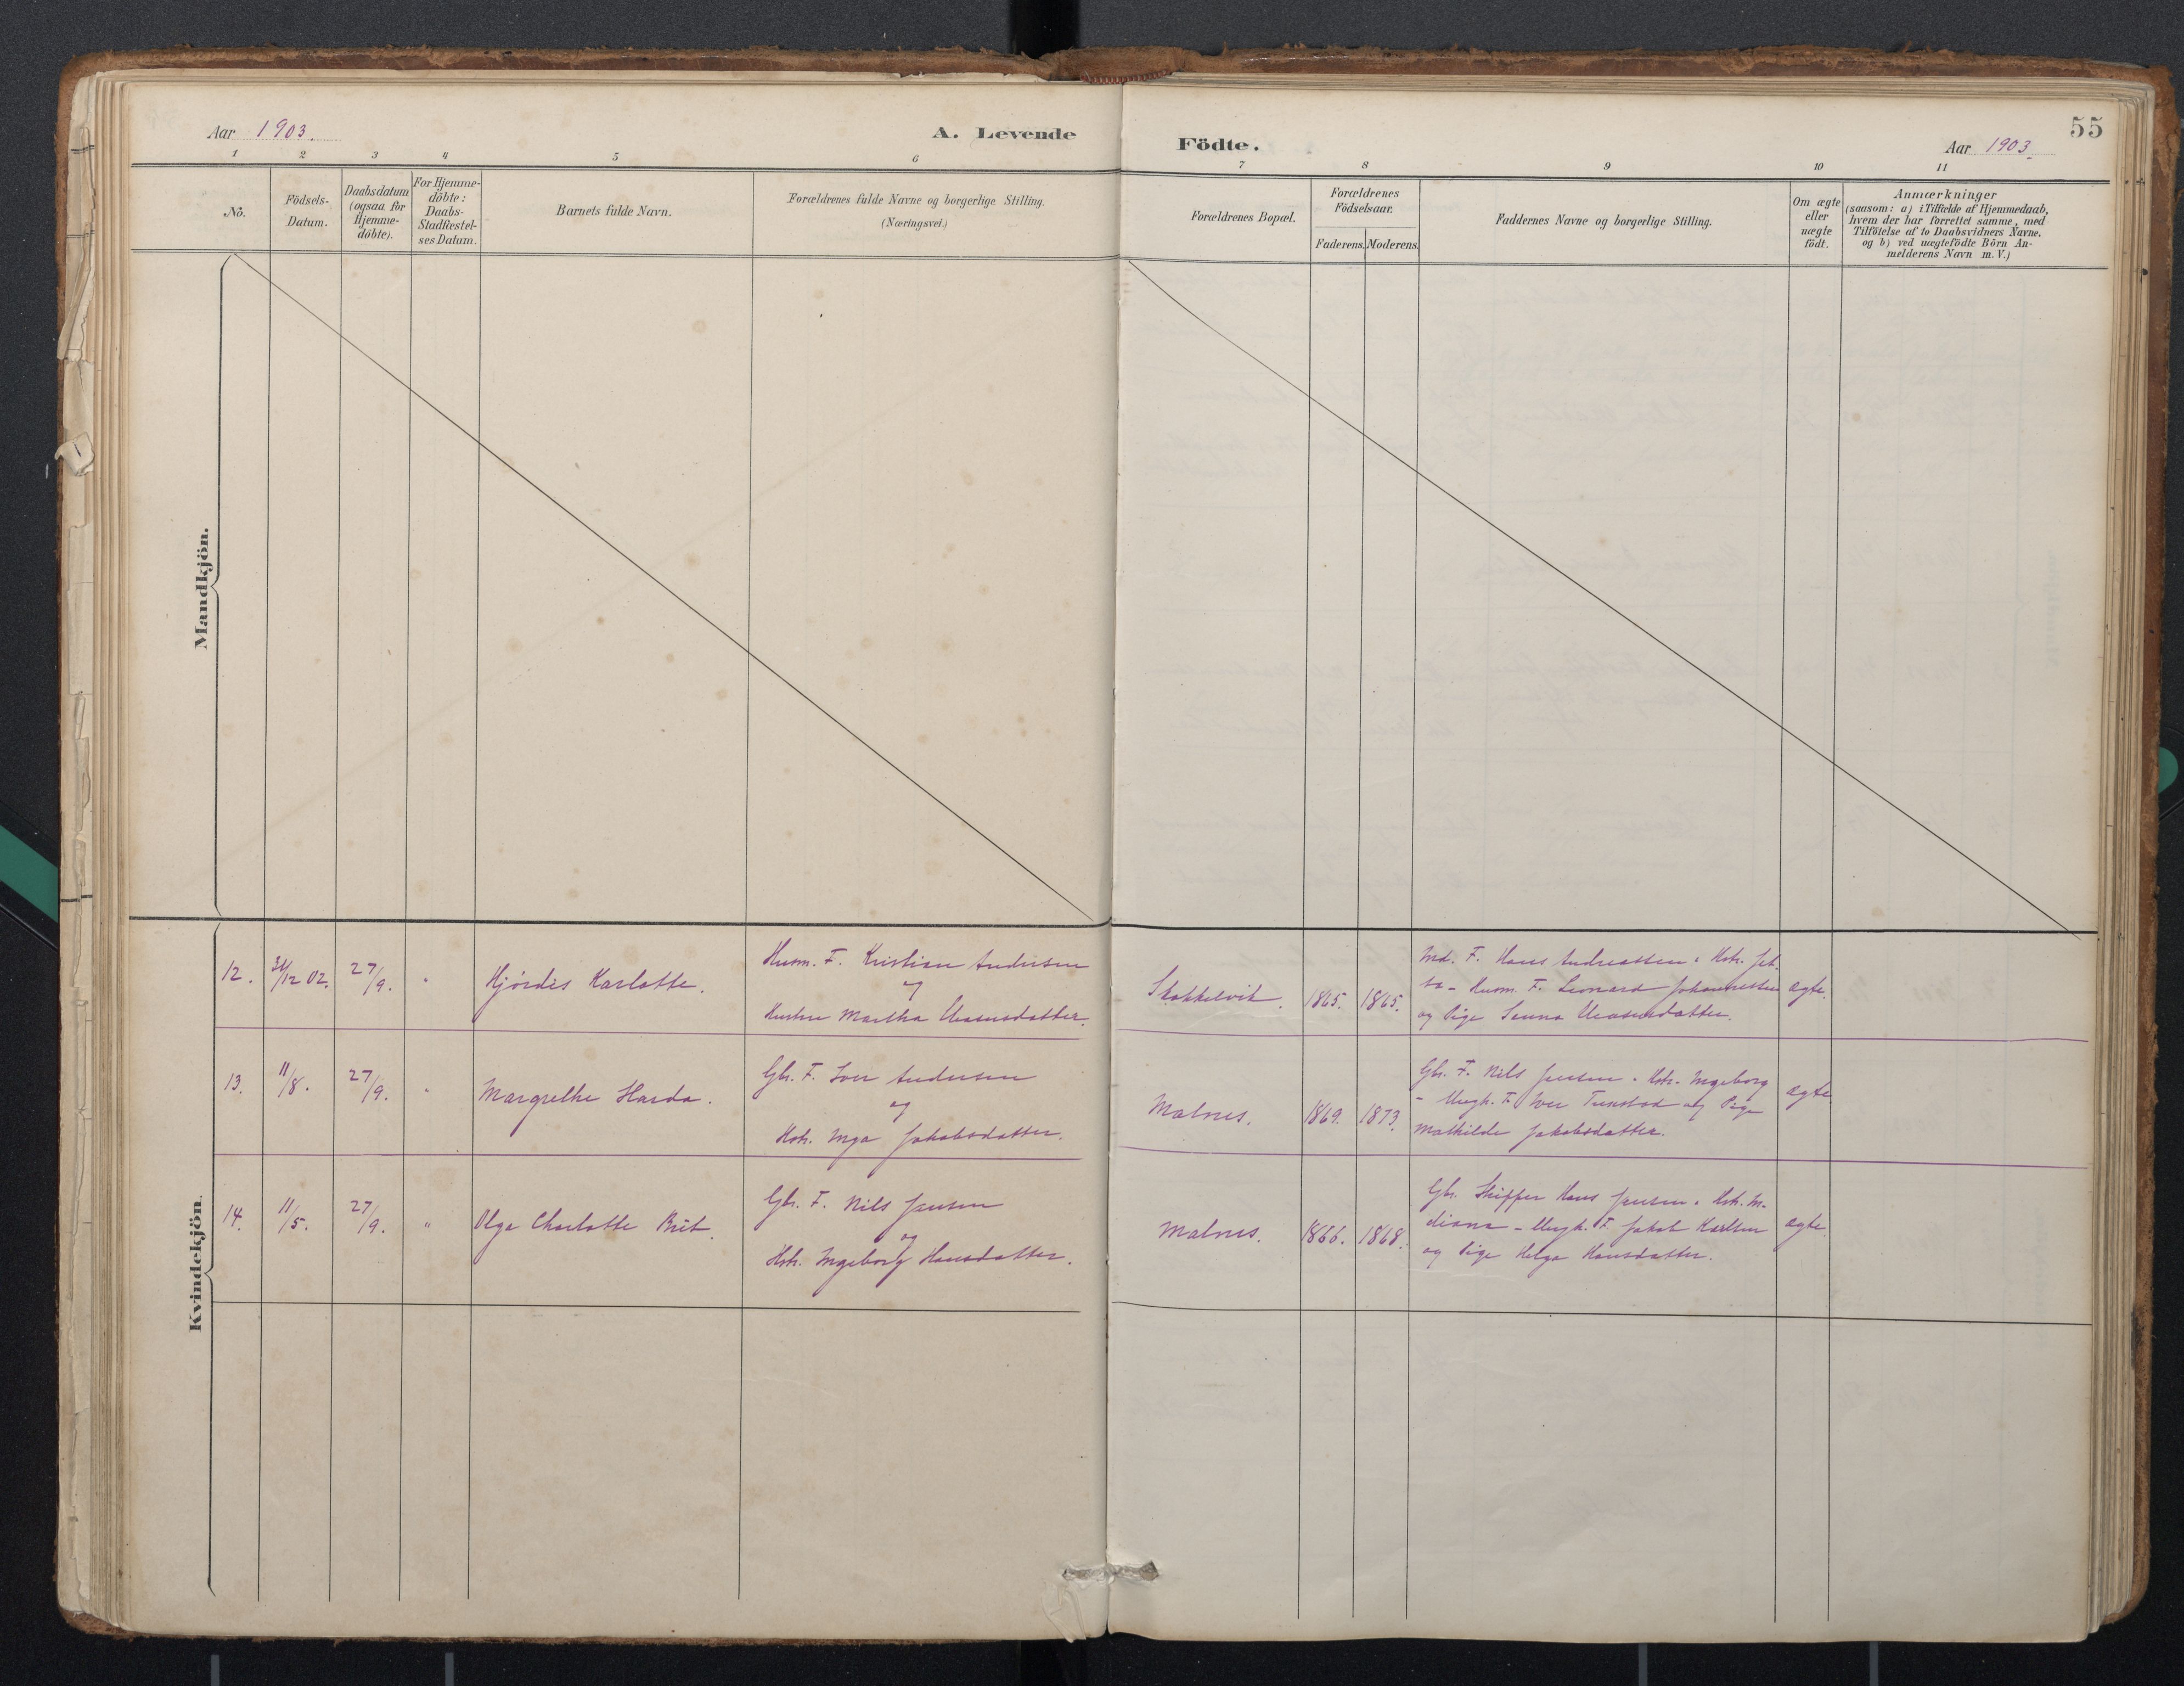 Aar 1903.
A. Levende
Födte.
Aar 1903.
55
1 2 3 4 5 6 7 8 9 10 11
No.
Födsels-
Datum.
Daabsdatum
(ogsaa for
Hjemme-
döbte).
For Hjemme-
döbte:
Daabs-
Stadfæstel-
ses Datum.
Barnets fulde Navn.
Forældrenes fulde Navne og borgerlige Stilling.
(Næringsvei.)
Forældrenes Bopæl.
Forældrenes
Födselsaar.
Faderens.
Moderens.
Faddernes Navne og borgerlige Stilling.
Om ægte
eller
uægte
födt.
Anmærkninger
(saasom: a) i Tilfælde af Hjemmedaab,
hvem der har forrettet samme, med
Tilföielse af to Daabsvidners Navne,
og b) ved uægtefödte Börn An-
melderens Navn m. V.)
Mandkjön.
Kvindekjön.
12.
31/12 02.
27/9.
"
Hjördis Karlotte.
Husm. F. Kristian Andersen
og
Hustru Martha
Skokkelvik.
1865.
1865.
Md. F. Hans Andreassen. Hstr. Jet-
ta - Husm. F. Leonard Johannessen
og Pige
ægte.
13.
11/8.
27/9.
"
Margrethe Harda.
Gbr. F. Iver Andersen
og
Hstr. Inga Jakobsdatter.
Malnes.
1869.
1873.
Gbr. F. Nils Jensen. Hstr. Ingeborg
- Ungk. F. Iver Tunstad og Pige
Mathilde Jakobsdatter.
ægte
14.
11/5.
27/9.
"
Olga Charlotte Brit.
Gbr. F. Nils Jensen
og
Hstr. Ingeborg Hansdatter.
Malnes.
1866.
1868.
Gbr. Skipper Hans Jensen. Hstr. In-
diana - Ungk. F. Jakob Karlsen
og Pige Helga Hansdatter.
ægte.